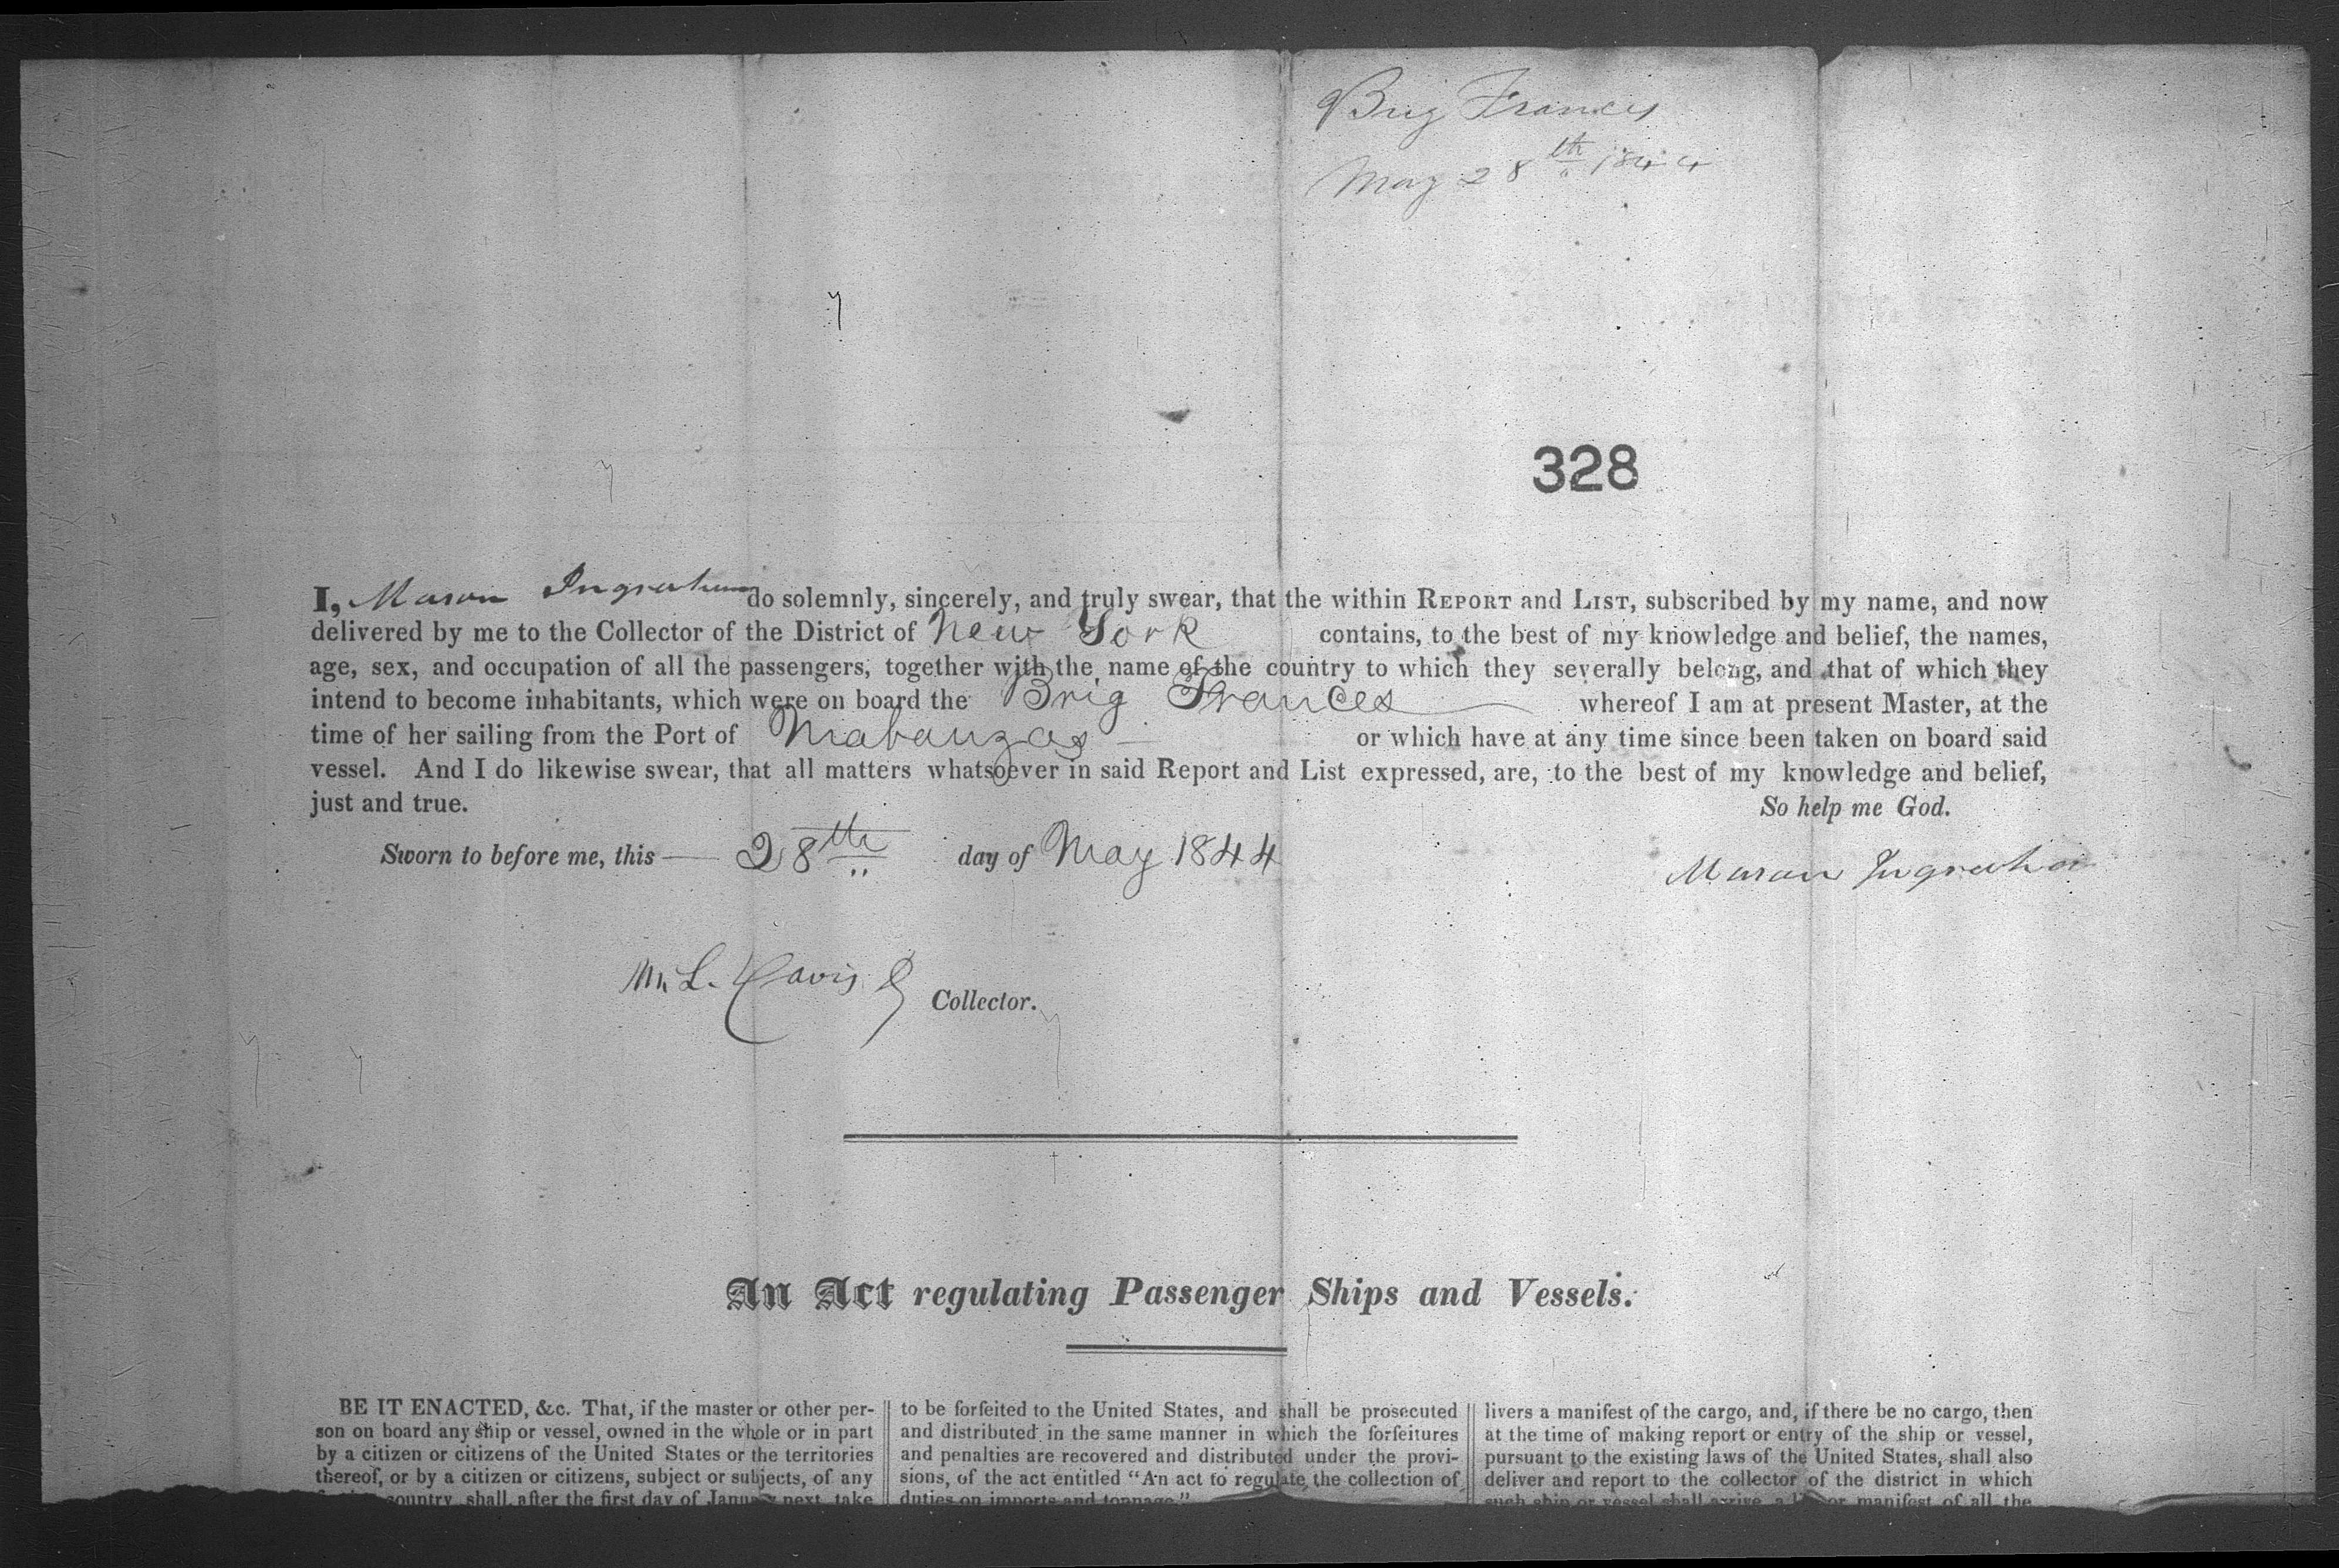 Brig Frances
May 28th 1844
328
I, Mason Ingraham do solemnly, sincerely, and truly swear, that the within REPORT and LIST, subscribed by my name, and now
delivered by me to the Collector of the District of New York contains, to the best of my knowledge and belief, the names,
age, sex, and occupation of all the passengers, together with the name of the country to which they severally belong, and that of which they
intend to become inhabitants, which were on board the Brig Frances whereof I am at present Master, at the
time of her sailing from the Port of Matanzas or which have at any time since been taken on board said
vessel. And I do likewise swear, that all matters whatsoever in said Report and List expressed, are, to the best of my knowledge and belief,
just and true. So help me God.
Sworn to before me, this 28th day of May 1844
Mason Ingraham
M. L. Davis Collector.
An Act regulating Passenger Ships and Vessels.
BE IT ENACTED, &c. That, if the master or other per-
son on board any ship or vessel, owned in the whole or in part
by a citizen or citizens of the United States or the territories
thereof, or by a citizen or citizens, subject or subjects, of any
country, shall, after the first day of January next, take
to be forfeited to the United States, and shall be prosecuted
and distributed in the same manner in which the forfeitures
and penalties are recovered and distributed under the provi-
sions, of the act entitled "An act to regulate the collection of
duties on imports and tonnage."
livers a manifest of the cargo, and, if there be no cargo, then
at the time of making report or entry of the ship or vessel,
pursuant to the existing laws of the United States, shall also
deliver and report to the collector of the district in which
such ship or vessel shall arrive, a list or manifest of all the